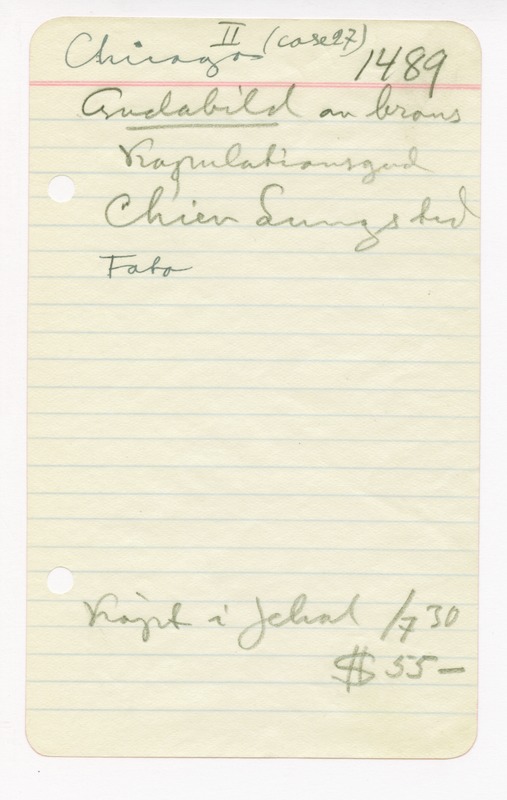 Chicago II (case 27) 1489
Gudabild av brons
Kopulationsgud
Chien Lungs tid
Foto
Köpt i Jehol 1/7 30
$ 55 —